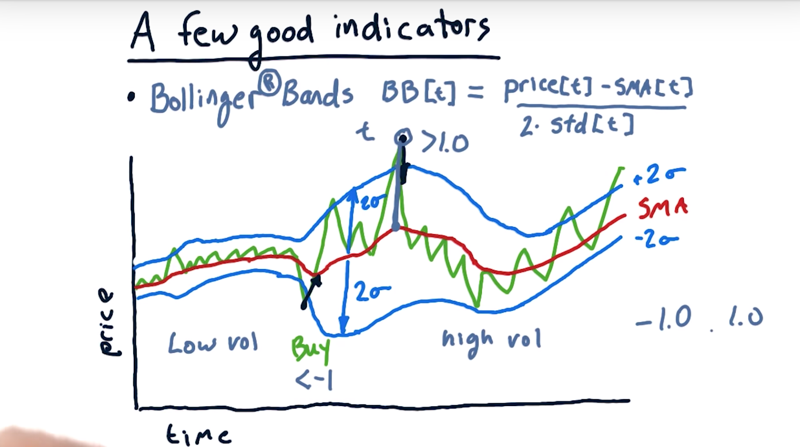 A few good indicators
• Bollinger® Bands BB[t] = price[t] - SMA[t]
2 · std[t]
t >1.0
+2σ
2σ
SMA
-2σ
2σ
price
-1.0 . 1.0
Low vol
Buy
high vol
<-1
time